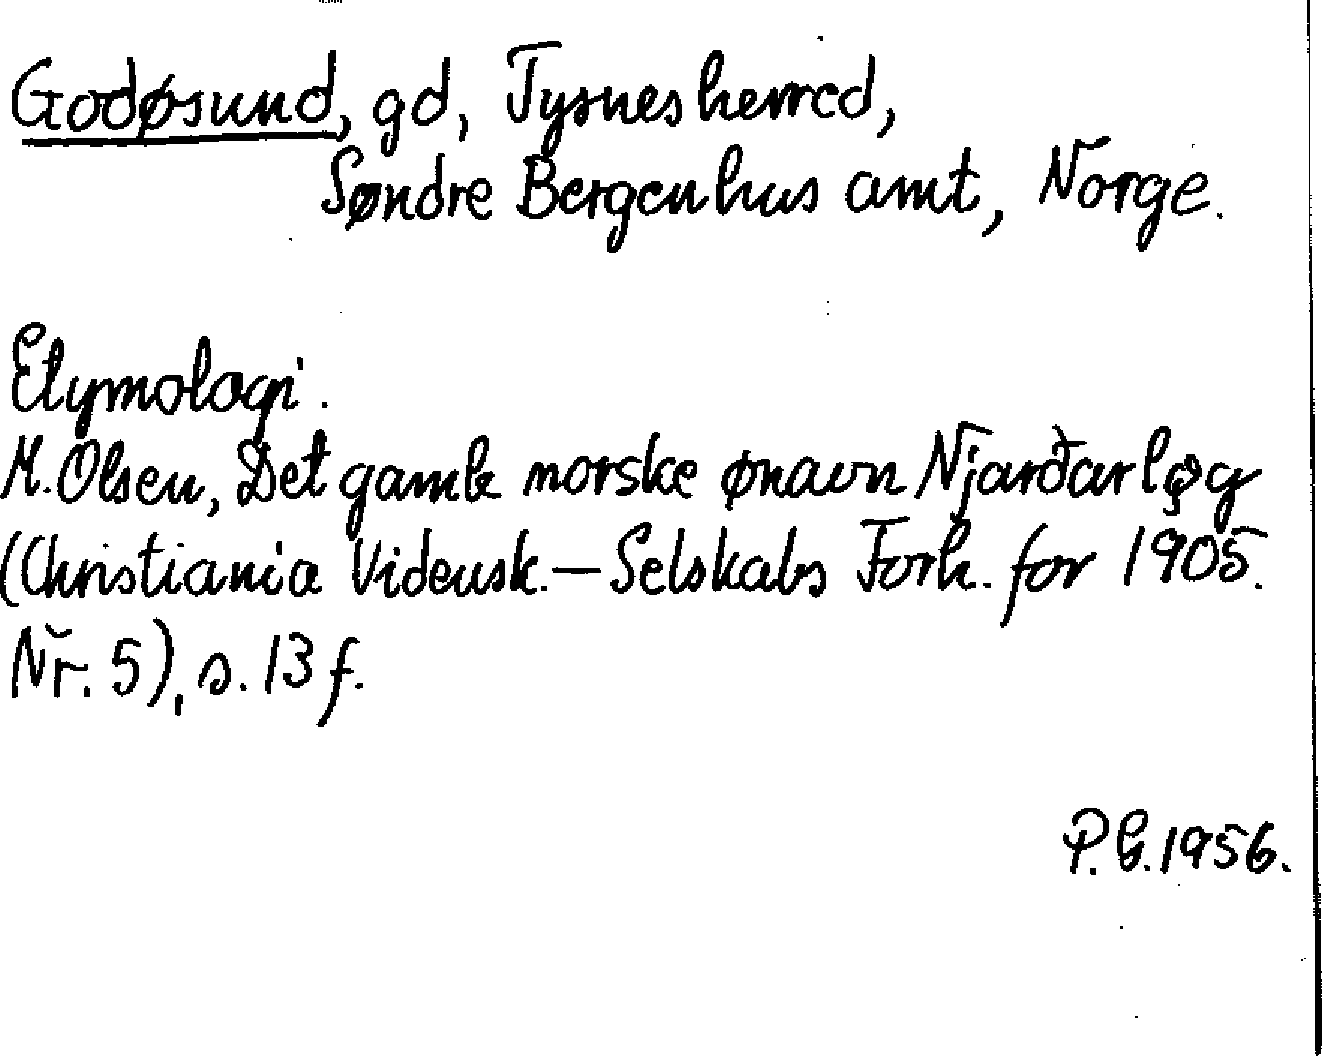 Godøsund, gd, Tysnes herred,
Søndre Bergenhus amt, Norge.
Etymologi.
M. Olsen, Det gamle norske ønavn Njarðarlǫg
(Christiania Vidensk.-Selskabs Forh. for 1905.
Nr. 5), s. 13 f.
P.G. 1956.